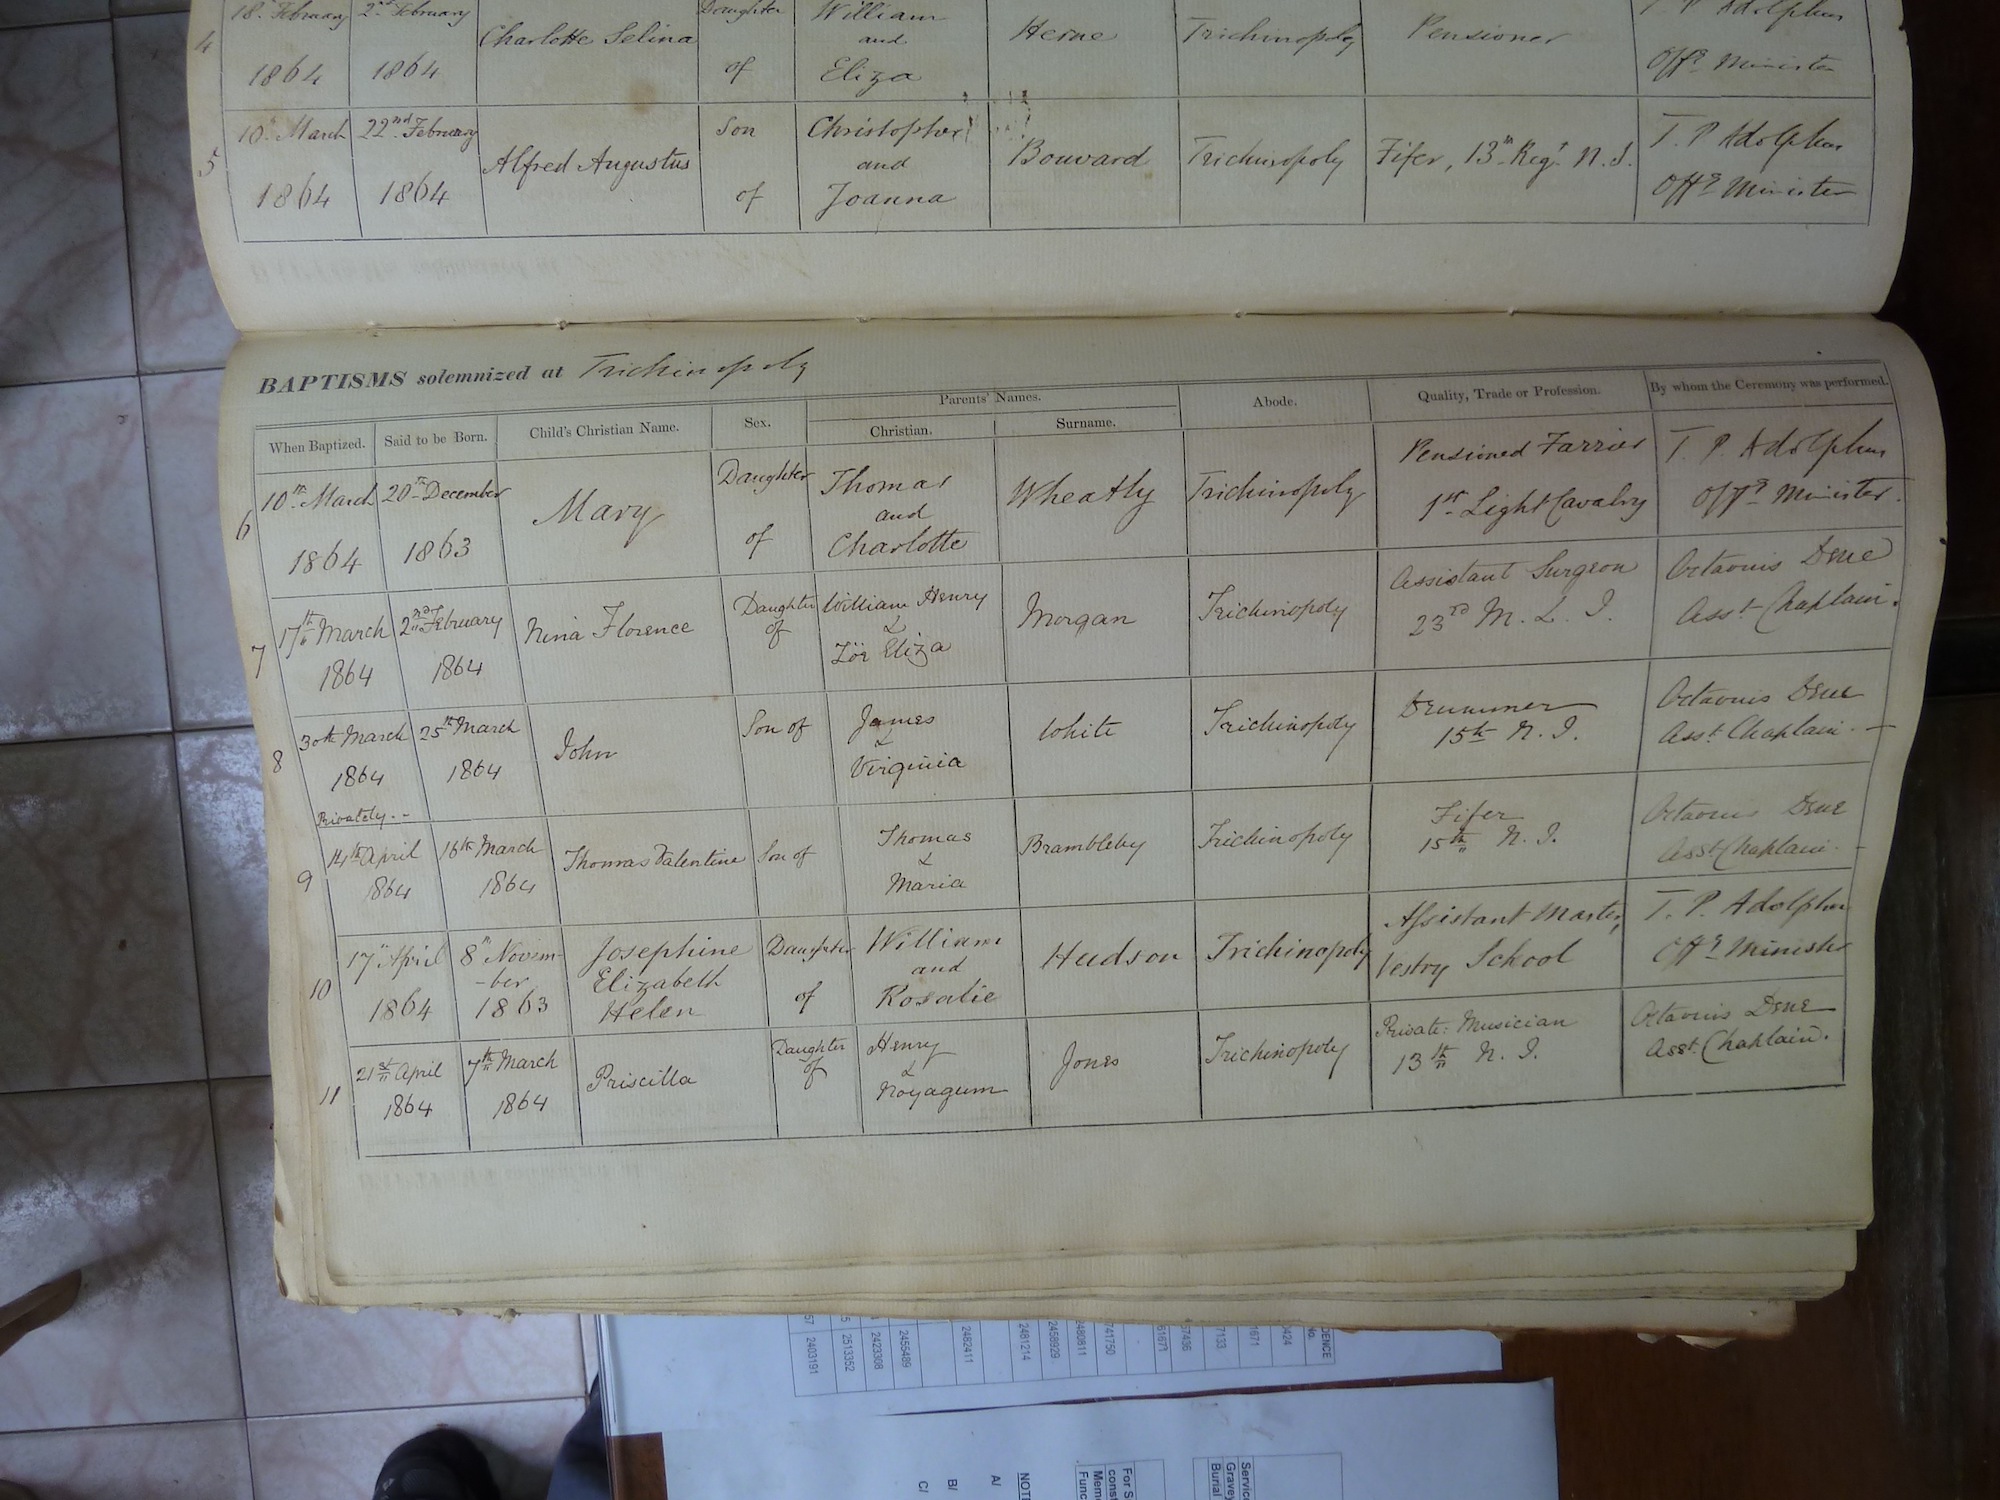 4
18th February
1864
2nd February
1864
Charlotte Selina
Daughter
of
William
and
Eliza
Herne
Trichinopoly
Pensioner
T. P. Adolphus
Offg Minister
5
10th March
1864
22nd February
1864
Alfred Augustus
Son
of
Christopher
and
Joanna
Bouvard
Trichinopoly
Fifer, 13th Regt N. I.
T. P. Adolphus
Offg Minister
BAPTISMS solemnized at Trichinopoly
When Baptized.
Said to be Born.
Child's Christian Name.
Sex.
Parents' Names.
Christian.
Surname.
Abode.
Quality, Trade or Profession.
By whom the Ceremony was performed.
6
10th March
1864
20th December
1863
Mary
Daughter
of
Thomas
and
Charlotte
Wheatly
Trichinopoly
Pensioned Farrier
1st Light Cavalry
T. P. Adolphus
Offg Minister.
7
17th March
1864
February
1864
Nina Florence
Daughter
of
William Henry
&
Zöe Eliza
Morgan
Trichinopoly
Assistant Surgeon
23rd M. L. I.
Octavius Dene
Asst Chaplain.
8
30th March
1864
25th March
1864
John
Son of
James
&
Virginia
White
Trichinopoly
Drummer
15th N. I.
Octavius Dene
Asst Chaplain. -
Privately. -
9
14th April
1864
16th March
1864
Thomas Valentine
Son of
Thomas
&
Maria
Brambleby
Trichinopoly
Fifer
15th N. I.
Octavius Dene
Asst Chaplain. -
10
17th April
1864
8th Novem-
-ber
1863
Josephine
Elizabeth
Helen
Daughter
of
William
and
Rosalie
Hudson
Trichinopoly
Assistant Master,
Vestry School
T. P. Adolphus
Offg Minister
11
21st April
1864
7th March
1864
Priscilla
Daughter
of
Henry
&
Noyagum
Jones
Trichinopoly
Private: Musician
13th N. I.
Octavius Dene
Asst Chaplain.
DENCE
No.
424
1671
7133
57436
61671
741750
2480811
2458929
2481214
2482411
2455489
2423308
2513352
2403191
57
5
Service
Gravey
Burial
For S
const
Mem
Func
NOT
A/
B/
C/